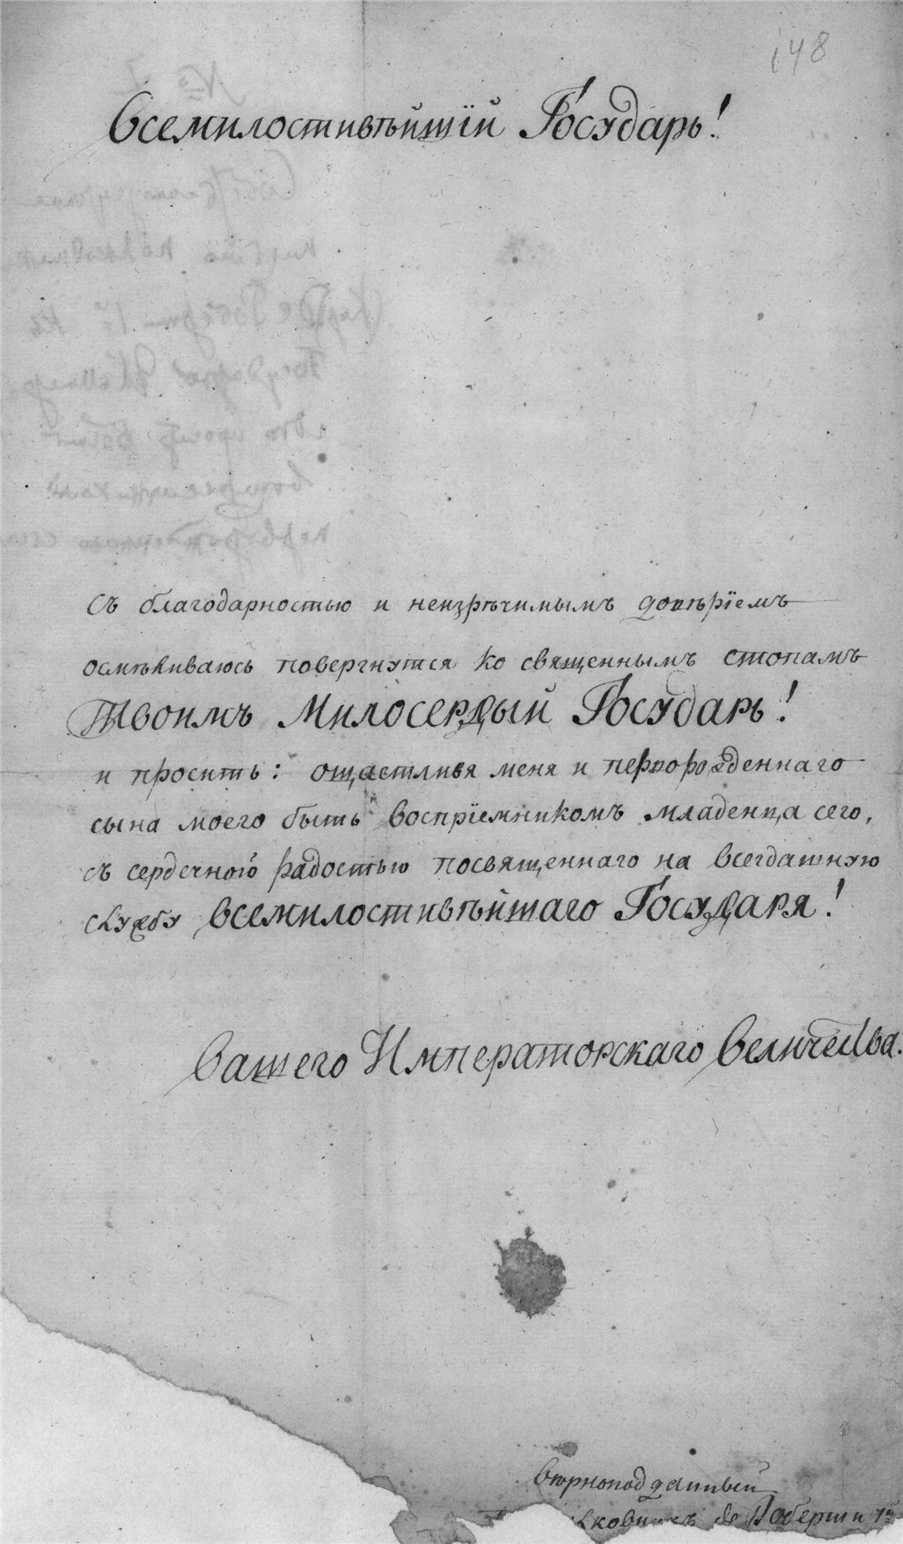 148
Всемилостивѣйшiй Государь!
Съ благодарностью и неизрѣчимымъ довѣрiемъ
осмѣливаюсь повергнутся ко священнымъ стопамъ
Твоимъ Милосердый Государь!
и просить: ощастливя меня и перворожденнаго
сына моего быть воспрiемникомъ младенца сего,
съ сердечной радостью посвященнаго на всегдашную
службу Всемилостивѣйшаго Государя!
Вашего Императорскаго Величества.
Вѣрноподданный
де